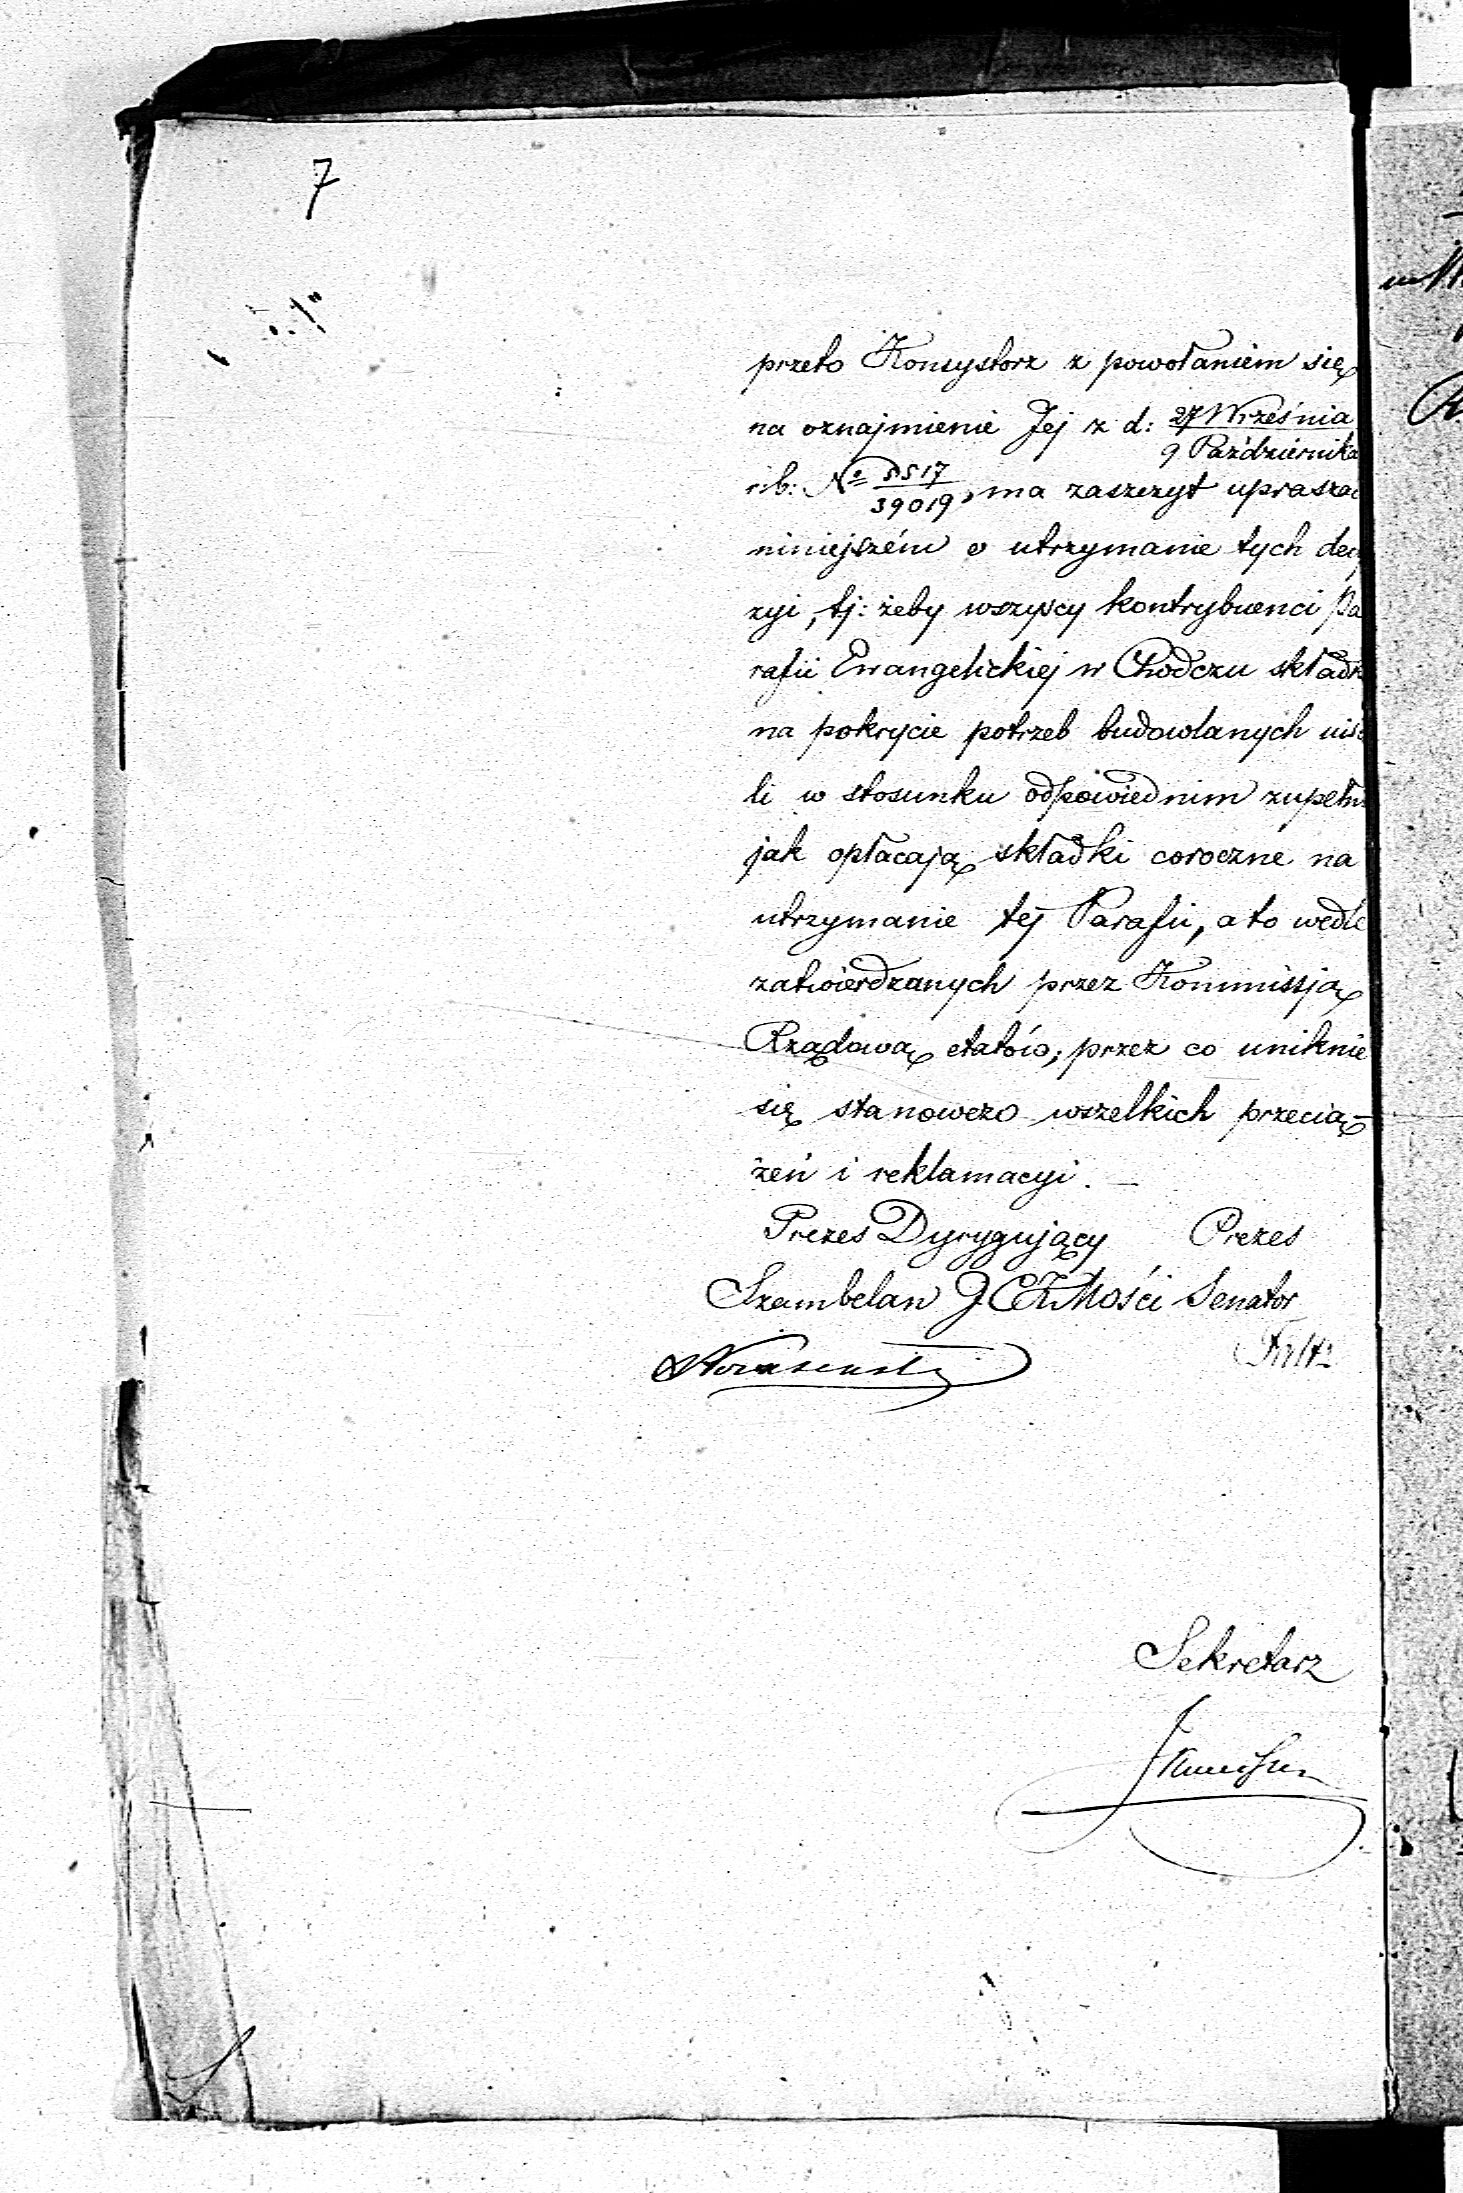 7
przeto Konsystorz z powołaniem się
na oznajmienie Jej z d: 27 Września
9 Października
r.b: № 5517
39019, ma zaszczyt upraszać
niniejszém o utrzymanie tych decy
zyi, tj: żeby wszyscy kontrybuenci Pa
rafii Ewangelickiej w Chodczu składk
na pokrycie potrzeb budowlanych uiś
li w stosunku odpowiednim zupełn
jak opłacają składki coroczne na
utrzymanie téj Parafii, a to wedle
zatwierdzanych przez Kommissją
Rządową etatów; przez co uniknie
się stanowczo wszelkich przecią-
żeń i reklamacyi. —
Prezes Dyrygujący Prezes
Szambelan J. C. K. Mości Senator
Sekretarz